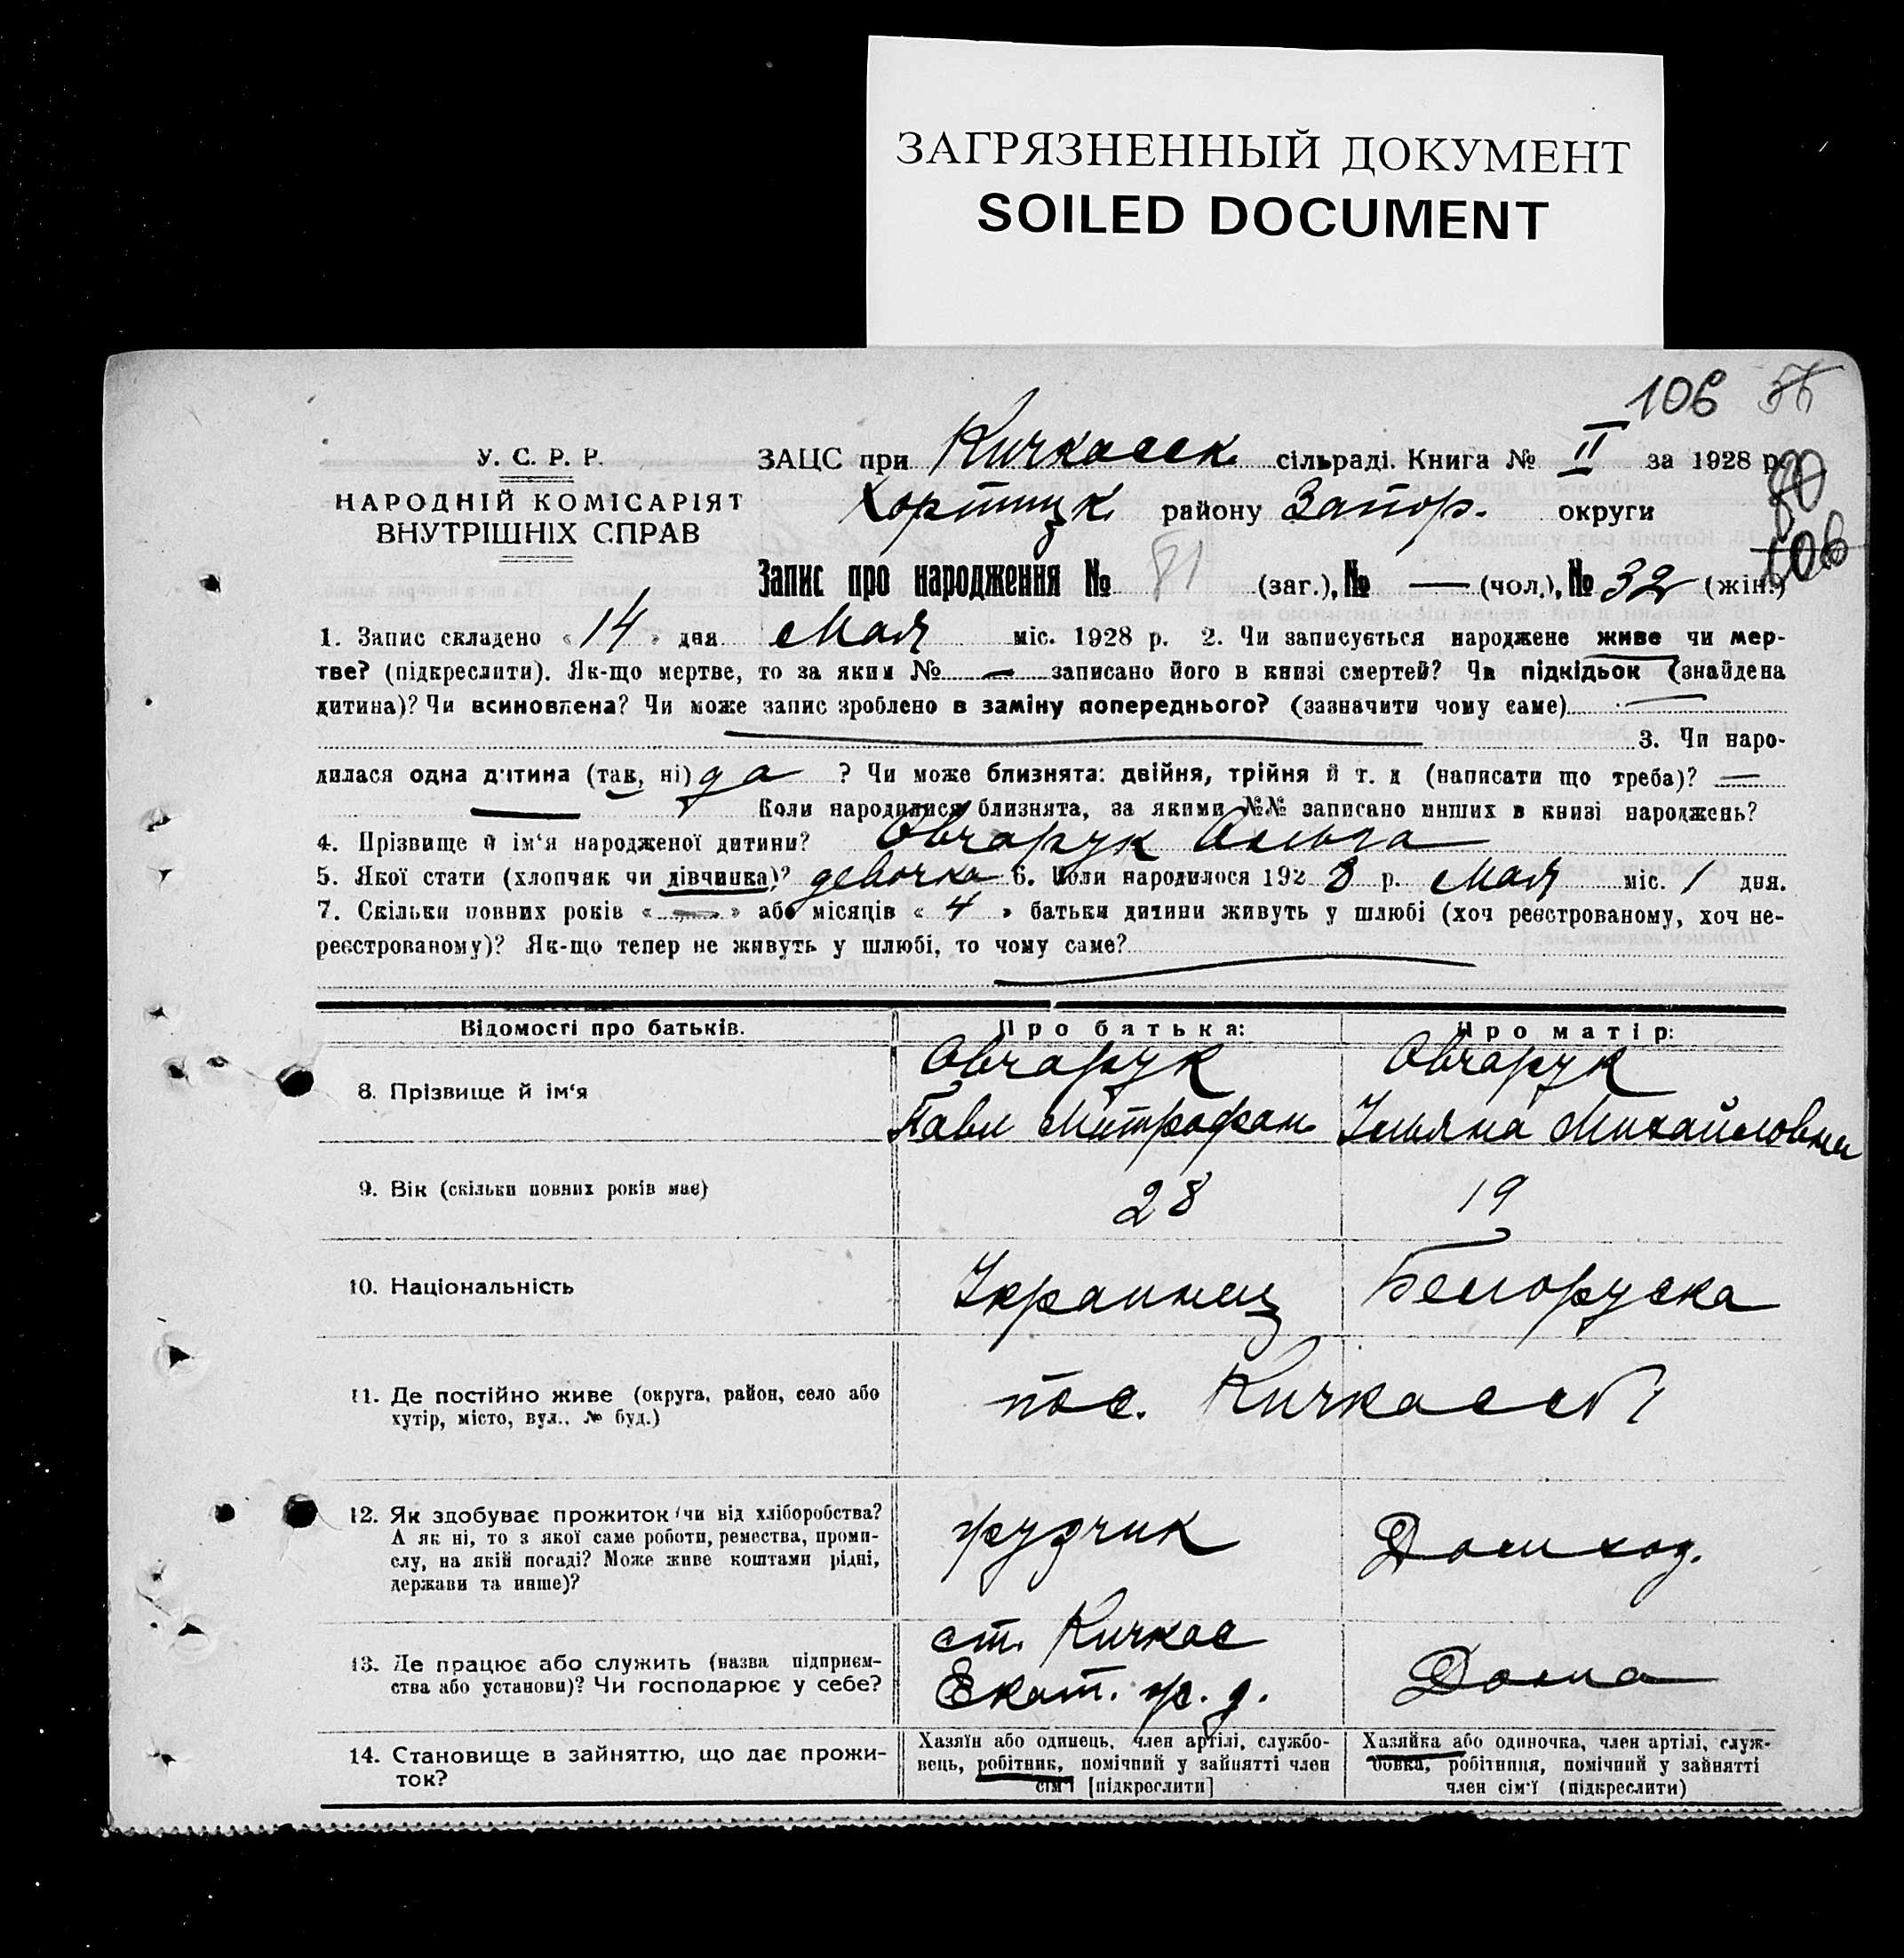 ЗАГРЯЗНЕННЫЙ ДОКУМЕНТ
SOILED DOCUMENT
106 56
У. С. Р. Р.
НАРОДНІЙ КОМІСАРІЯТ
ВНУТРІШНІХ СПРАВ
ЗАЦС при Кичкасск. сільраді. Книга № II за 1928 р.
80
Хортицк. району Запор. округи
106
Запис про народження № 81 (заг.), № — (чол.), № 32 (жін.)
1. Запис складено « 14 » дня Мая міс. 1928 р. 2. Чи записується народжене живе чи мер-
тве? (підкреслити). Як-що мертве, то за яким № — записано його в книзі смертей? Чи підкідьок (знайдена
дитина)? Чи всиновлена? Чи може запис зроблено в заміну попереднього? (зазначити чому саме) —
3. Чи наро-
дилася одна дитина (так, ні) да ? Чи може близнята: двійня, трійня й т. д (написати що треба)? —
— Коли народилися близнята, за якими №№ записано инших в книзі народжень?
4. Прізвище й ім'я народженої дитини? Овчарук Ольга
5. Якої стати (хлопчик чи дівчинка)? девочка 6. Коли народилося 1928 р. Мая міс. 1 дня.
7. Скільки повних років « — » або місяців « 4 » батьки дитини живуть у шлюбі (хоч реєстрованому, хоч не-
реєстрованому)? Як-що тепер не живуть у шлюбі, то чому саме?
Відомості про батьків.
Про батька:
Про матір:
8. Прізвище й ім'я
Овчарук
Павл Митрофан.
Овчарук
Ульяна Михайловна
9. Вік (скільки повних років має)
28
19
10. Національність
Украинец
Белоруска
11. Де постійно живе (округа, район, село або
хутір, місто, вул.. № буд.)
пос. Кичкассы
12. Як здобуває прожиток (чи від хліборобства?
А як ні, то з якої саме роботи, ремества, проми-
слу, на якій посаді? Може живе коштами рідні,
держави та инше)?
грузчик
Домход.
13. Де працює або служить (назва підприєм-
ства або установи)? Чи господарює у себе?
ст. Кичкас
Екат. ж. д.
Дома
14. Становище в зайняттю, що дає прожи-
ток?
Хазяїн або одинець, член артілі, службо-
вець, робітник, помічний у зайнятті член
сім'ї [підкреслити]
Хазяйка або одиночка, член артілі, служ-
бовка, робітниця, помічний у зайнятті
член сім'ї (підкреслити)